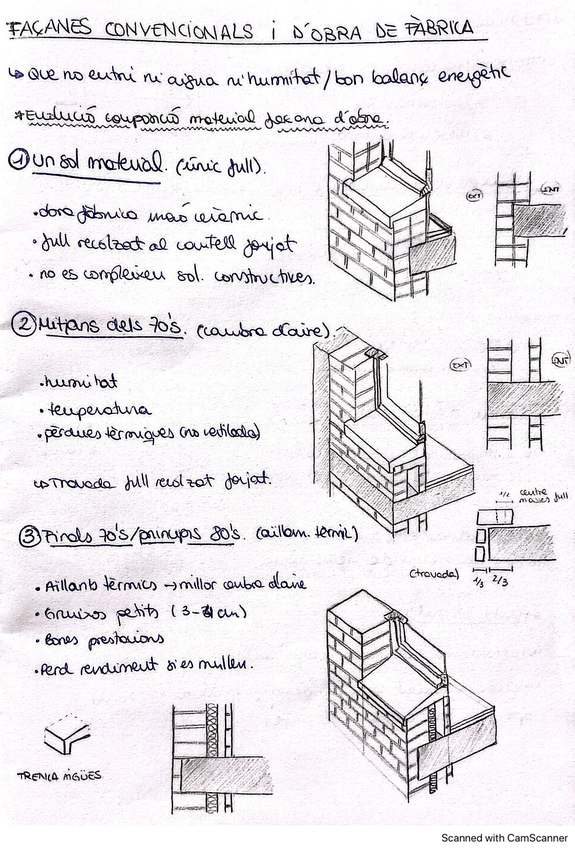 FAÇANES CONVENCIONALS i D'OBRA DE FÀBRICA
↳ Que no entri ni aigua ni humitat / bon balanç energètic
*Evolució composició material façana d'obra.
① Un sol material. (únic full).
• obra fàbrica maó ceràmic.
• full recolzat al cantell forjat
• no es compleixen sol. constructives.
EXT
INT
② Mitjans dels 70's. (cambra d'aire).
• humitat
• temperatura
• pèrdues tèrmiques (no ventilada)
↳ Travada full recolzat forjat.
EXT
INT
1/2 centre
masses full
(travada) 1/3 2/3
③ Finals 70's/principis 80's. (aïllam. tèrmic)
• Aïllants tèrmics → millor cambra d'aire
• Gruixos petits (3-4 cm)
• Bones prestacions
• Perd rendiment si es mullen.
TRENCA AIGÜES
Scanned with CamScanner